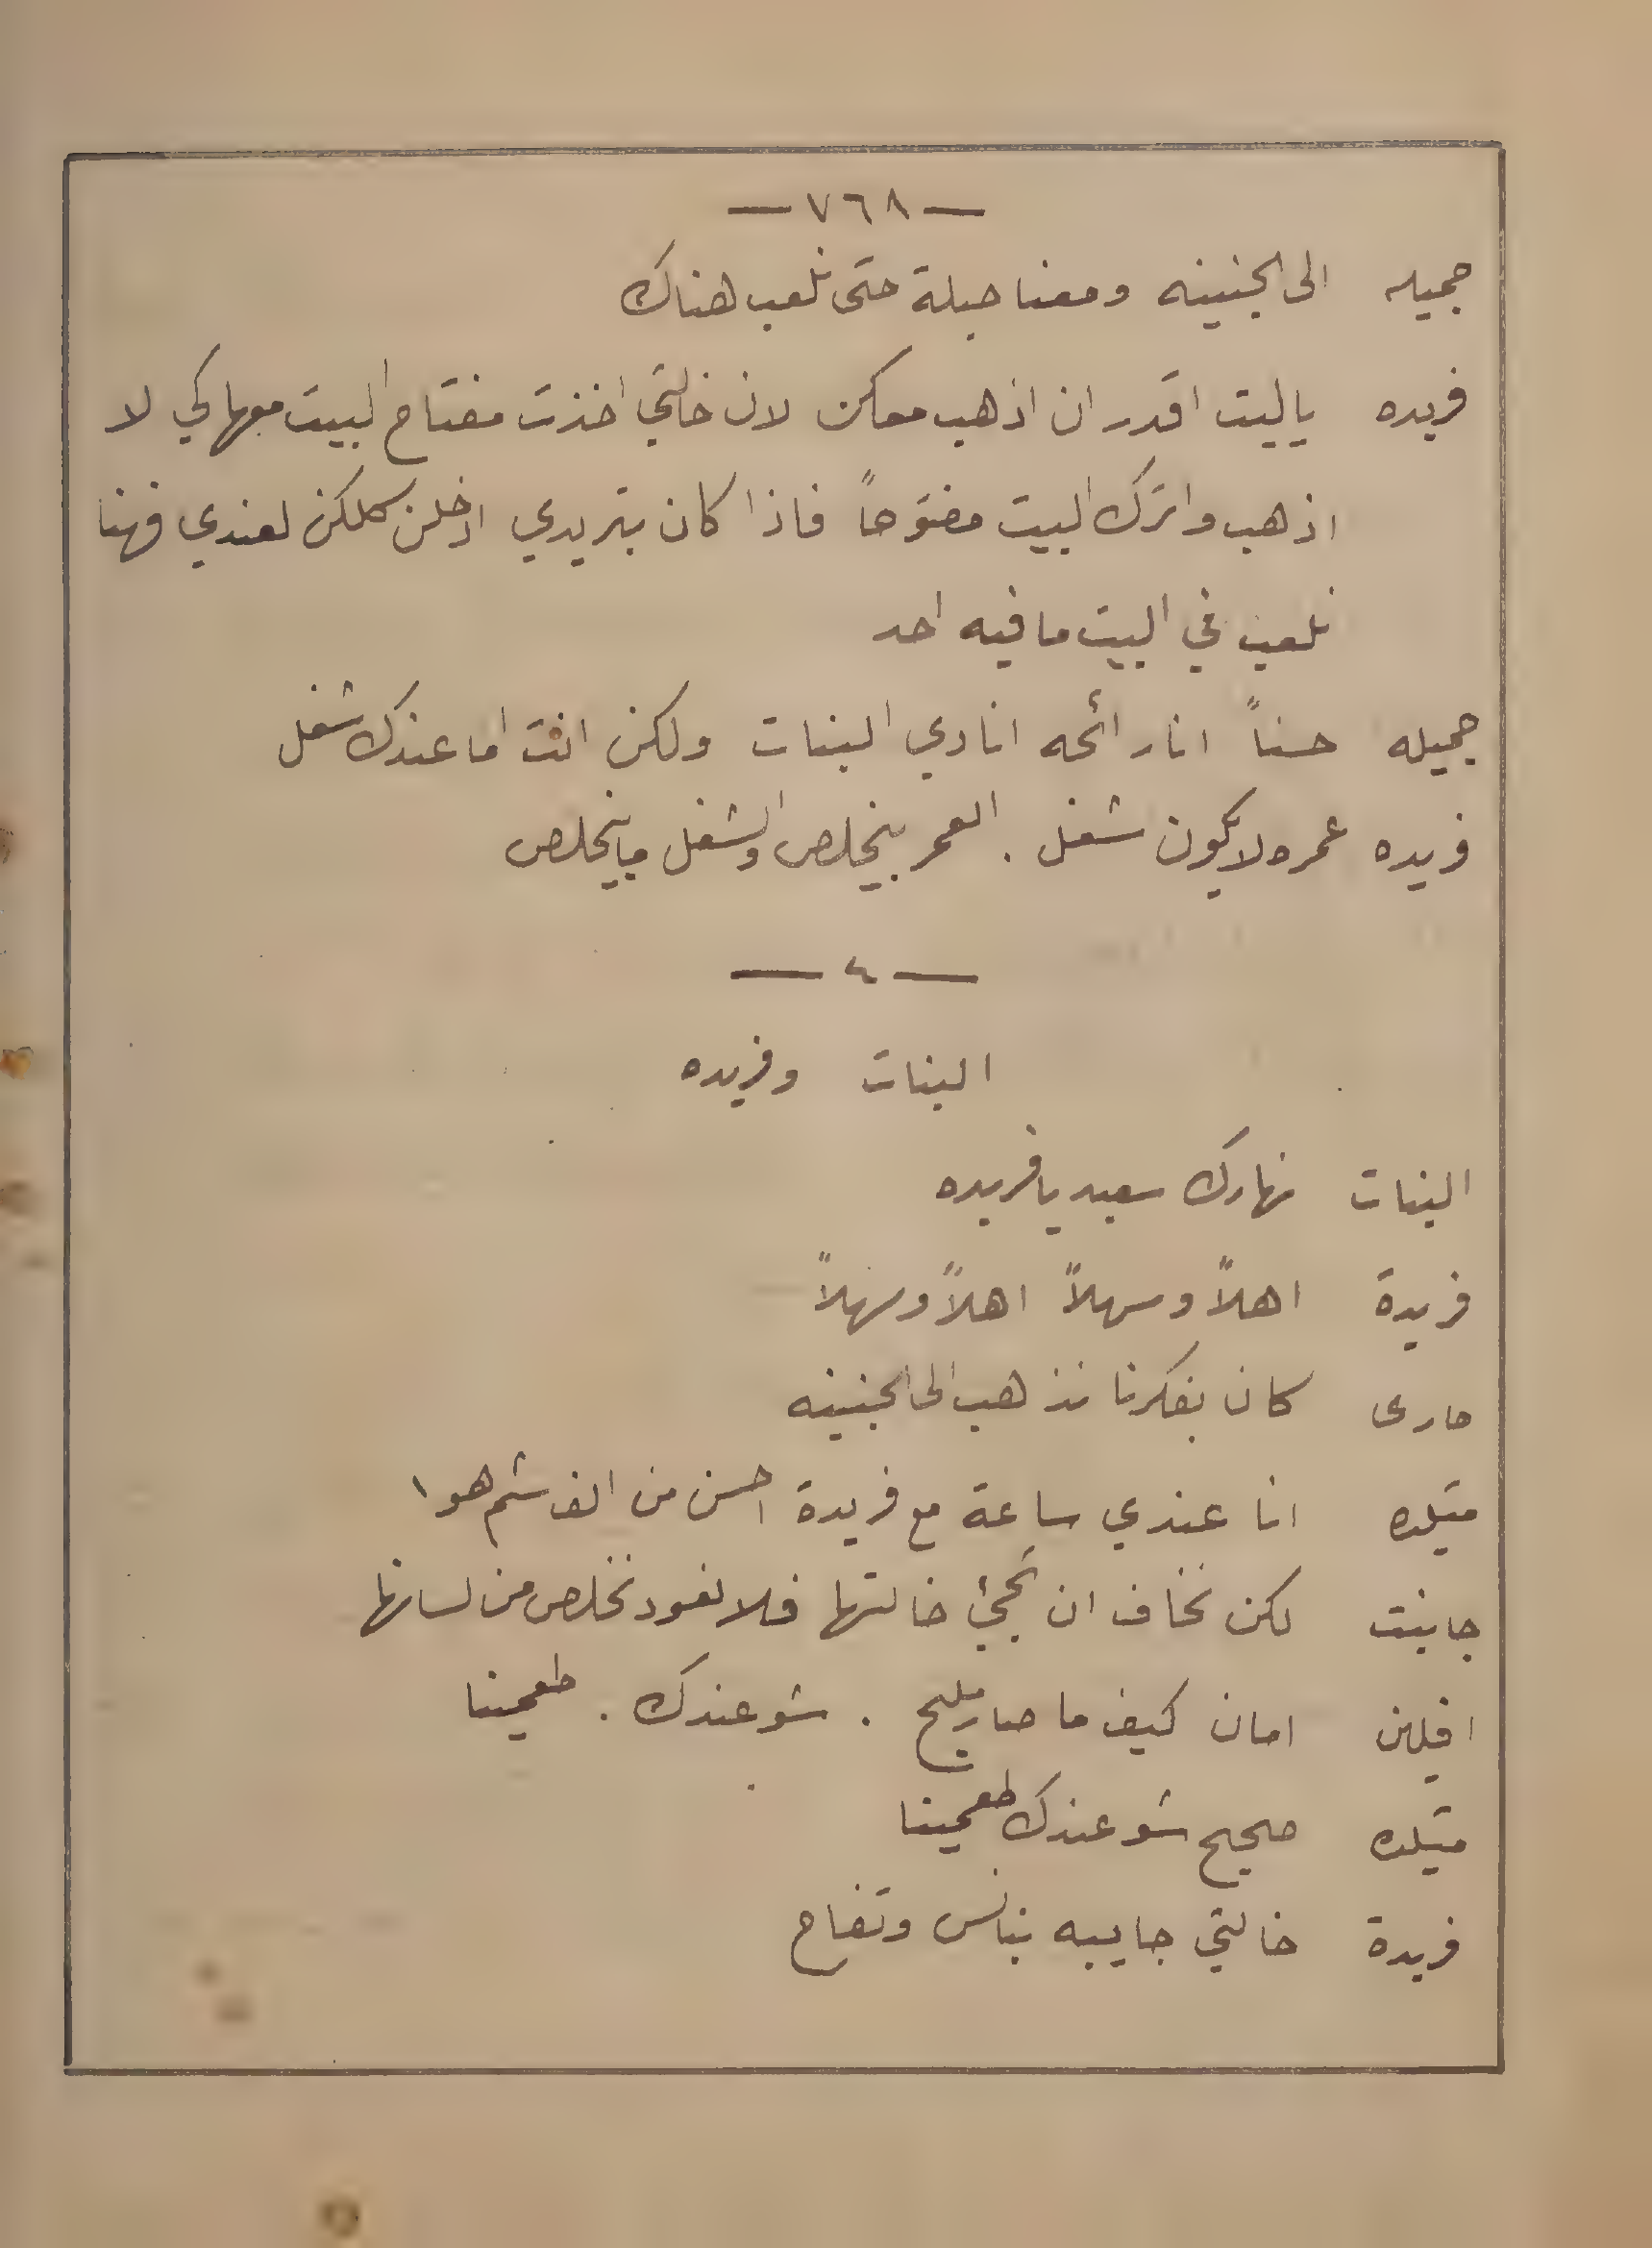 — ٧٦٨ —
جميله الى الجنينه ومعنا حبلة حتى نلعب هناك
فريده ياليت اقدر ان اذهب معكن لان خالتي اخذت مفتاح البيت معها كي لا
اذهب واترك البيت مفتوحاً فاذا كان بتريدي ادخلن كلكن لعندي فهنا
نلعب في البيت ما فيه احد
جميله حسناً انا رائحه انادي البنات ولكن انت اما عندك شغل
فريده عمره لا يكون شغل . العمر بيخلص والشغل ما بيخلص
— ٤ —
البنات وفريده
البنات نهارك سعيد يا فريده
فريدة اهلاً وسهلاً اهلاً وسهلاً
مارى كان بفكرنا نذهب الى الجنينه
متيلده انا عندي ساعة مع فريدة احسن من الف شم هوا
جانيت لكن نخاف ان تجئ خالتها فلا نعود نخلص من لسانها
افلين امان كيف ما صار مليح . شو عندك . طعمينا
متيلده صحيح شو عندك طعمينا
فريدة خالتي جايبه بنانس وتفاح